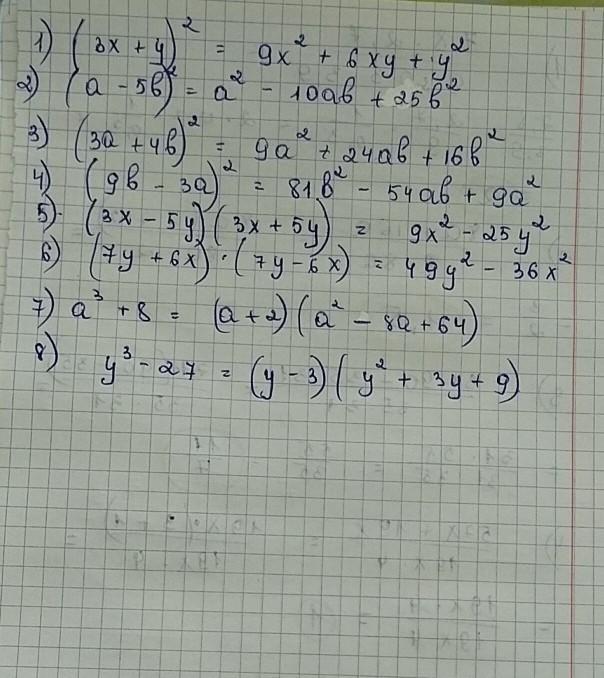 1) (3x + y)² = 9x² + 6xy + y²
2) (a - 5b)² = a² - 10ab + 25b²
3) (3a + 4b)² = 9a² + 24ab + 16b²
4) (9b - 3a)² = 81b² - 54ab + 9a²
5) (3x - 5y)(3x + 5y) = 9x² - 25y²
6) (7y + 6x) · (7y - 6x) = 49y² - 36x²
7) a³ + 8 = (a + 2)(a² - 8a + 64)
8) y³ - 27 = (y - 3)(y² + 3y + 9)